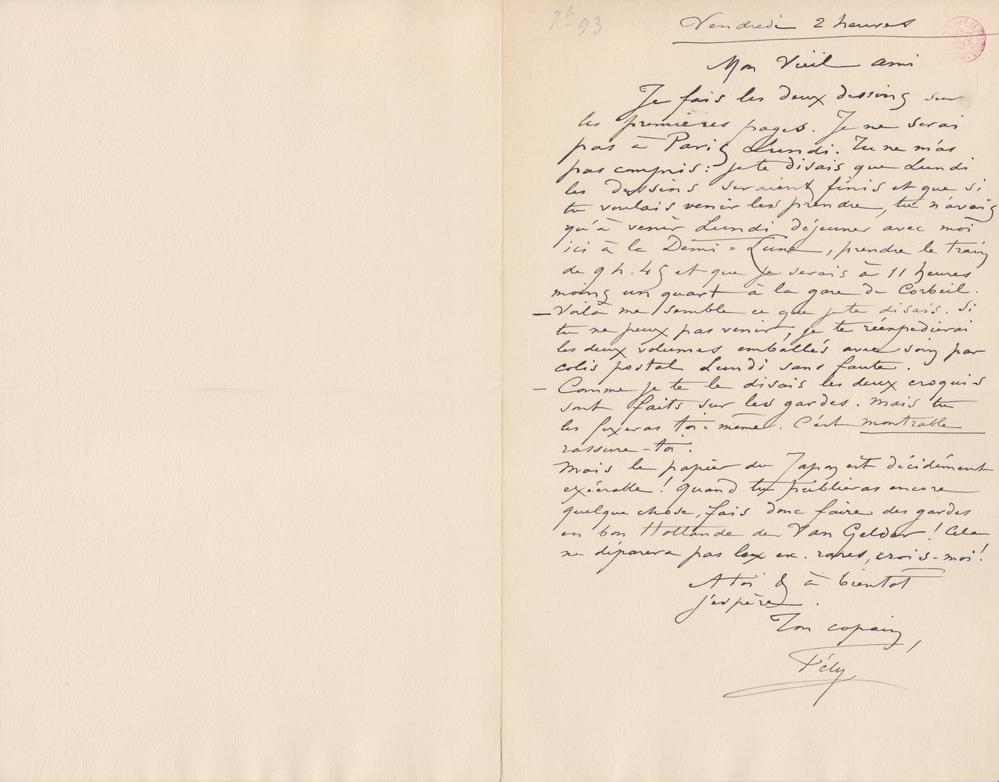 93
Vendredi 2 heures
Mon Vieil ami
Je fais les deux dessins sur
les premières pages. Je ne serai
pas à Paris Lundi. Tu ne m'as
pas compris : je te disais que Lundi
les dessins seraient finis et que si
tu voulais venir les prendre, tu n'avais
qu'à venir Lundi déjeuner avec moi
ici à la Demi = Lune, prendre le train
de 9 h. 45 et que je serais à 11 heures
moins un quart à la gare de Corbeil.
— Voilà me semble ce que je te disais. Si
tu ne peux pas venir, je te réexpédierai
les deux volumes emballés avec soin par
colis postal Lundi sans faute.
— Comme je te le disais les deux croquis
sont faits sur les gardes. Mais tu
les fixeras toi-même. C'est montrable
rassure-toi.
Mais le papier du Japon est décidément
exécrable ! Quand tu publieras encore
quelque chose, fais donc faire des gardes
en bon Hollande de Van Gelder ! Cela
ne déparera pas les ex. rares, crois-moi !
A toi & à bientôt
j'espère.
Ton copain,
Fély